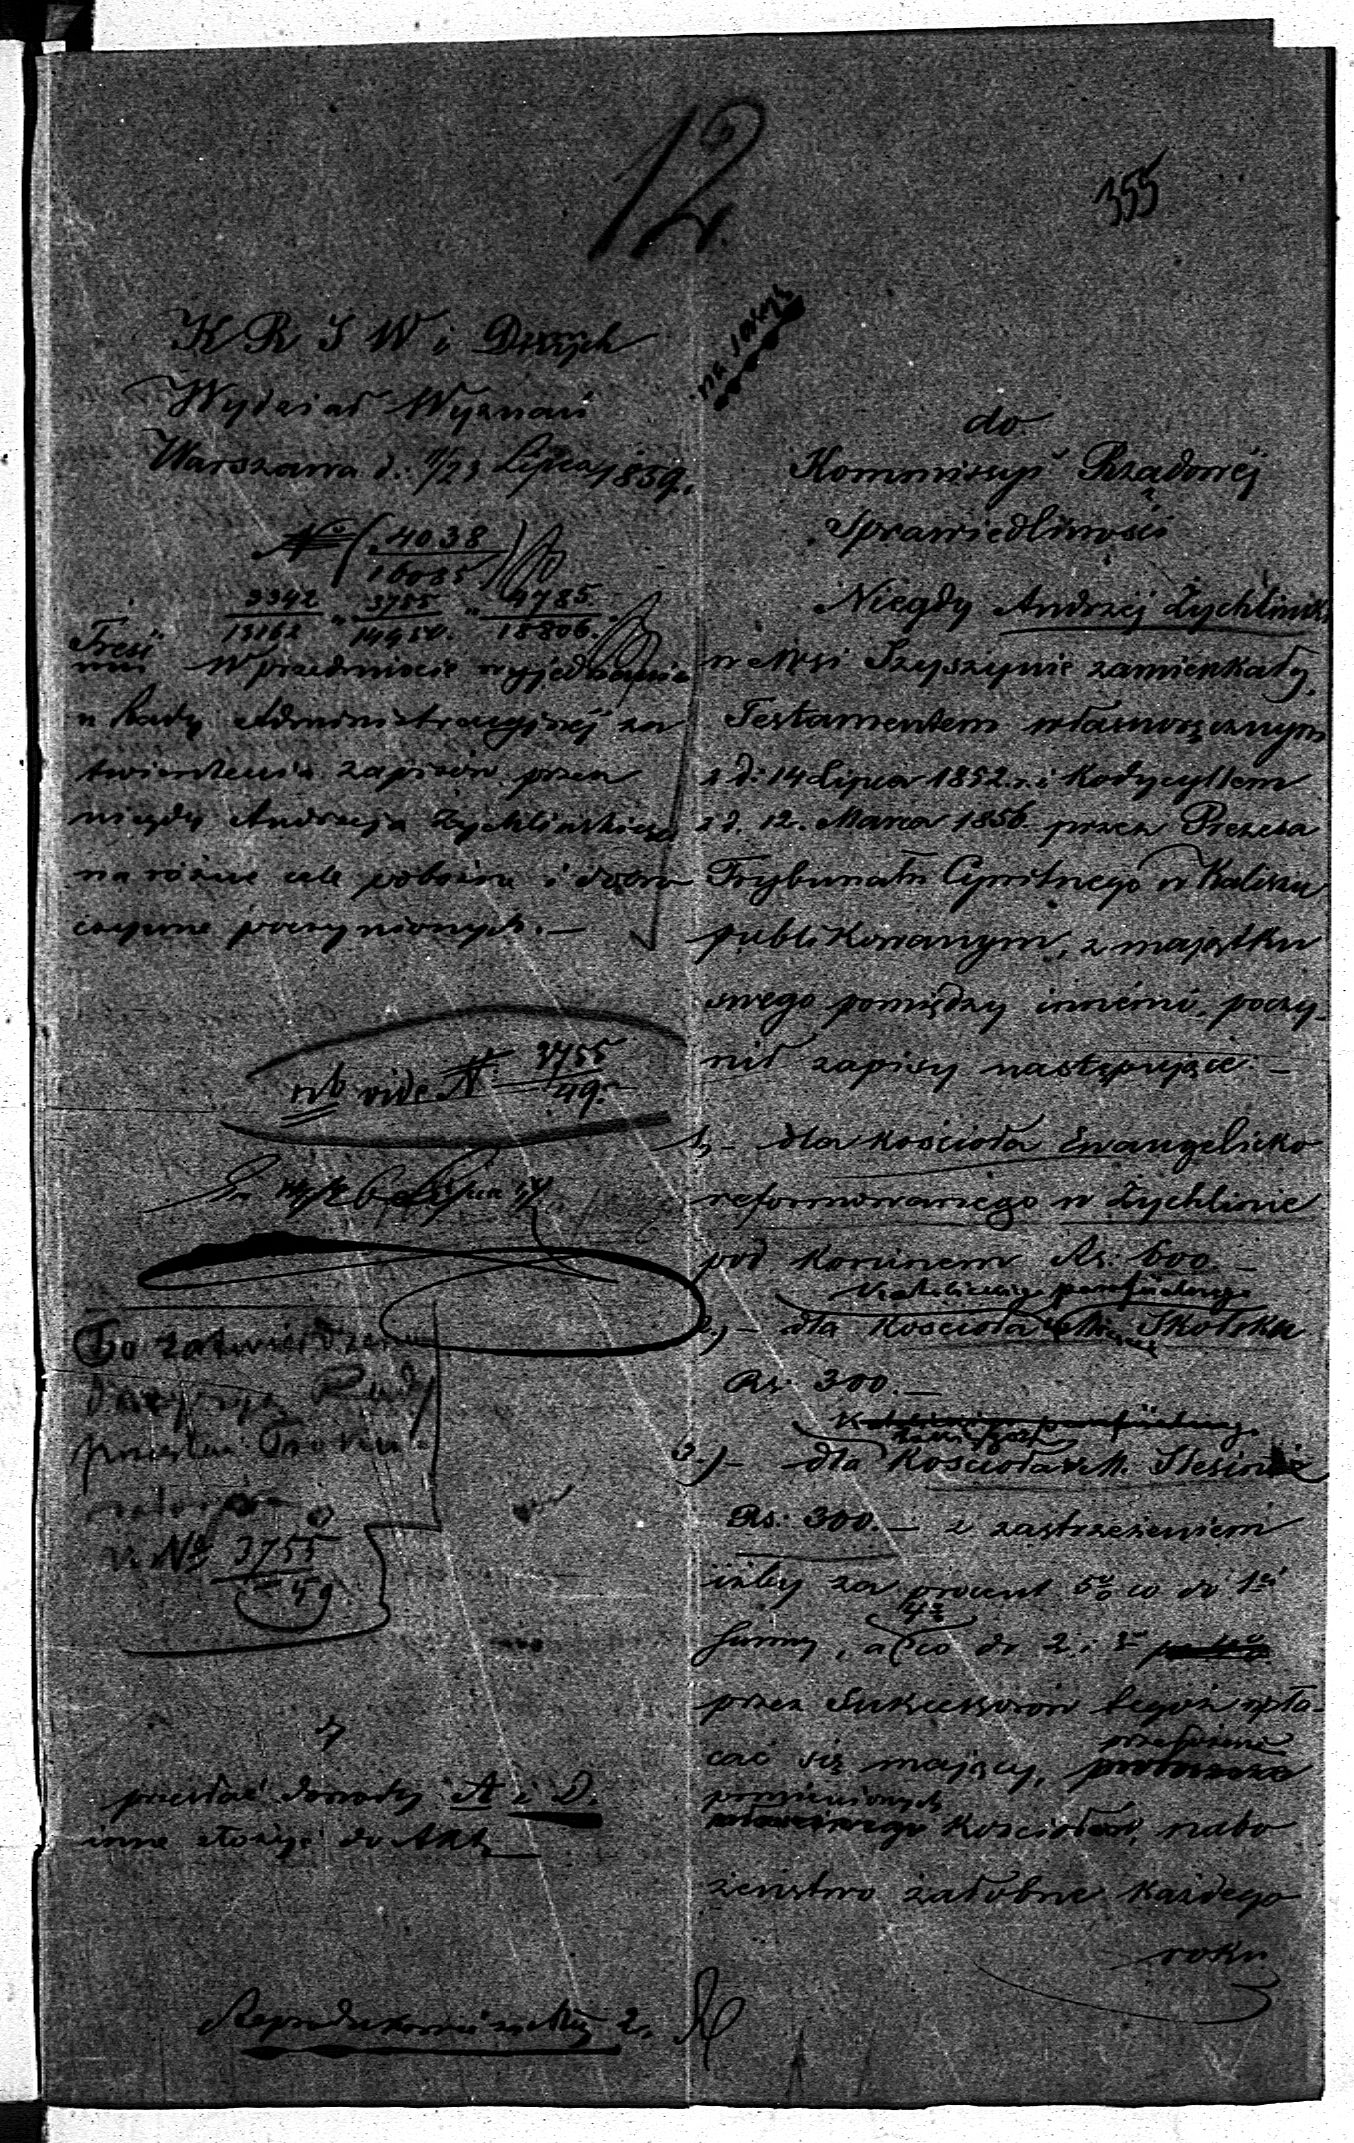 12
355
K R S W i D
Wydział Wyznań
Warszawa d. 11/23 Lipca 1859.
No (4038/16085)
3342/13162 " 3755/14950. " 4785/18806.
W przedmiocie wyjednania
u Rady Administracyjnéj za
twierdzenia zapisów przez
niegdy Andrzeja Żychlińskiego
na różne cele pobożne i dobro
czynne poczynionych. —
nb vide N. 3755/49.
To zatwierdzenia
Rady
N° 3755/59
przesłać dowody A i D.
inne złożyć do Akt
2.
do
Kommissyi Rządowéj
Sprawiedliwości
Niegdy Andrzéj Żychliński
w Wsi Szyszynie zamieszkały,
Testamentem własnoręcznym
z d: 14 Lipca 1852. r. i Kodycyllem
z d. 12. Marca 1856. przez Prezesa
Trybunału Cywilnego w Kaliszu
publikowanym, z majątku
swego pomiędzy innémi, poczy-
nił zapisy następujące: —
1, — dla Kościoła Ewangelicko
reformowanego w Żychlinie
pod Koninem Rs: 600. —
2.) — dla Kościoła Skolsku
Rs: 300. —
3.) — dla Kościoła w M. Slesinie
Rs: 300. — z zastrzeżeniem
iżby za procent 5% co do 1éj
4%
Summy, a co do 2 i 3
przez Sukcessorów Legów wpła-
cać się mający, przełożeni
pomienionych Kościołów, nabo
żeństwo żałobne każdego
roku